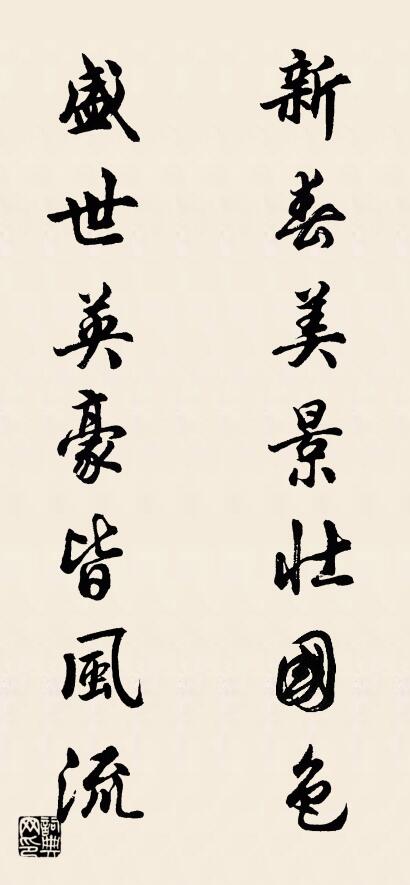 新春美景壮國色
盛世英豪皆風流
詞典網印